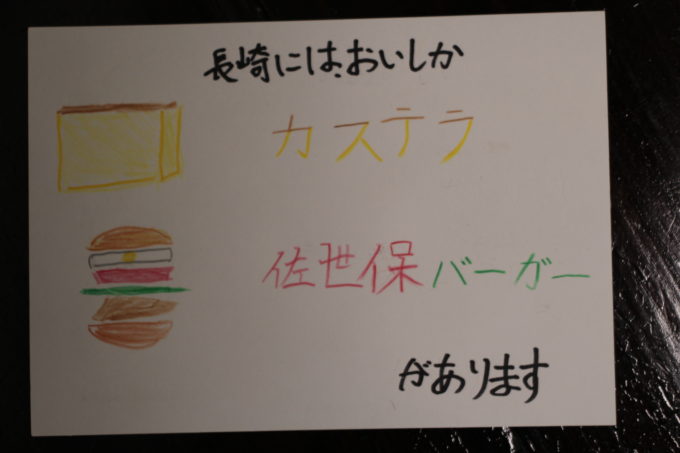 長崎には、おいしか
カステラ
佐世保バーガー
があります